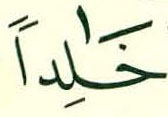 خَـٰلِداً